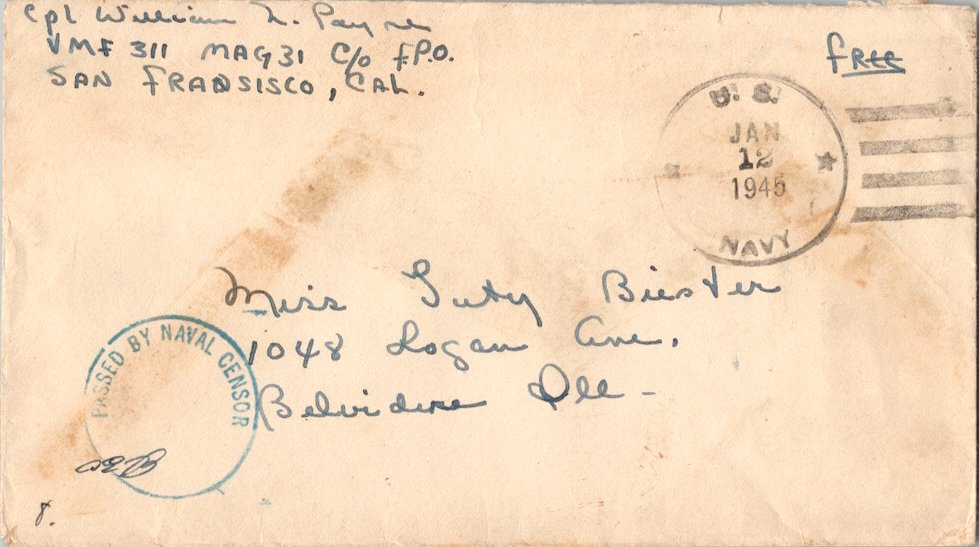 Cpl William L. Payne
VMF 311 MAG31 C/o F.P.O.
SAN FRANSISCO, CAL.
FREE
U. S.
JAN
12
1945
NAVY
Miss Biester
1048 Logan Ave.
Belvidere Ill-
PASSED BY NAVAL CENSOR